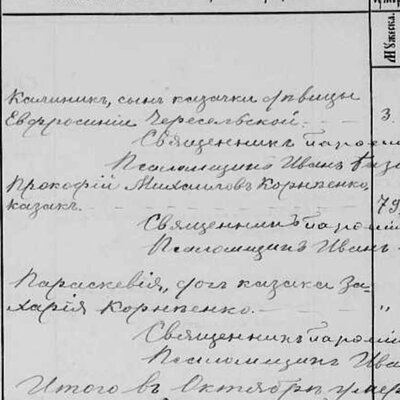 Мужеска.
Калиникъ, сынъ казачки дѣвицы
Евфросиніи Чересельской. 3.
Священникъ
Псаломщикъ Иванъ
Прокофій Михаиловъ Корніенко,
казакъ. 79
Священникъ
Псаломщикъ Иванъ
Параскевія, доч. казака За-
харія Корніенко. "
Священникъ
Псаломщикъ Ива
Итого въ Октябрѣ умер